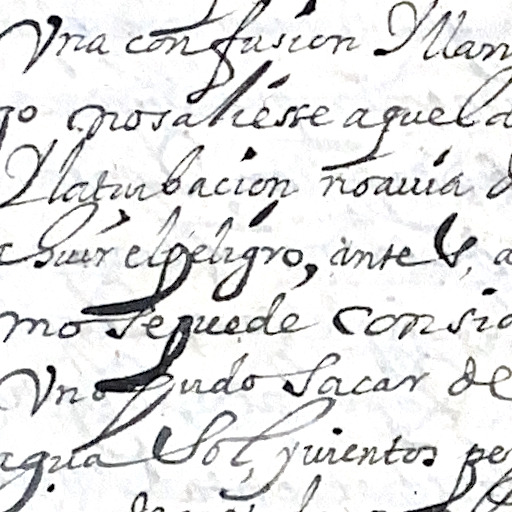 Una confusion Y llan
go no saliesse aquel d
Y la turbacion no auia d
huir el peligro, antes, a
mo se puede consid
Uno pudo sacar de
agua Sol, y vientos pe